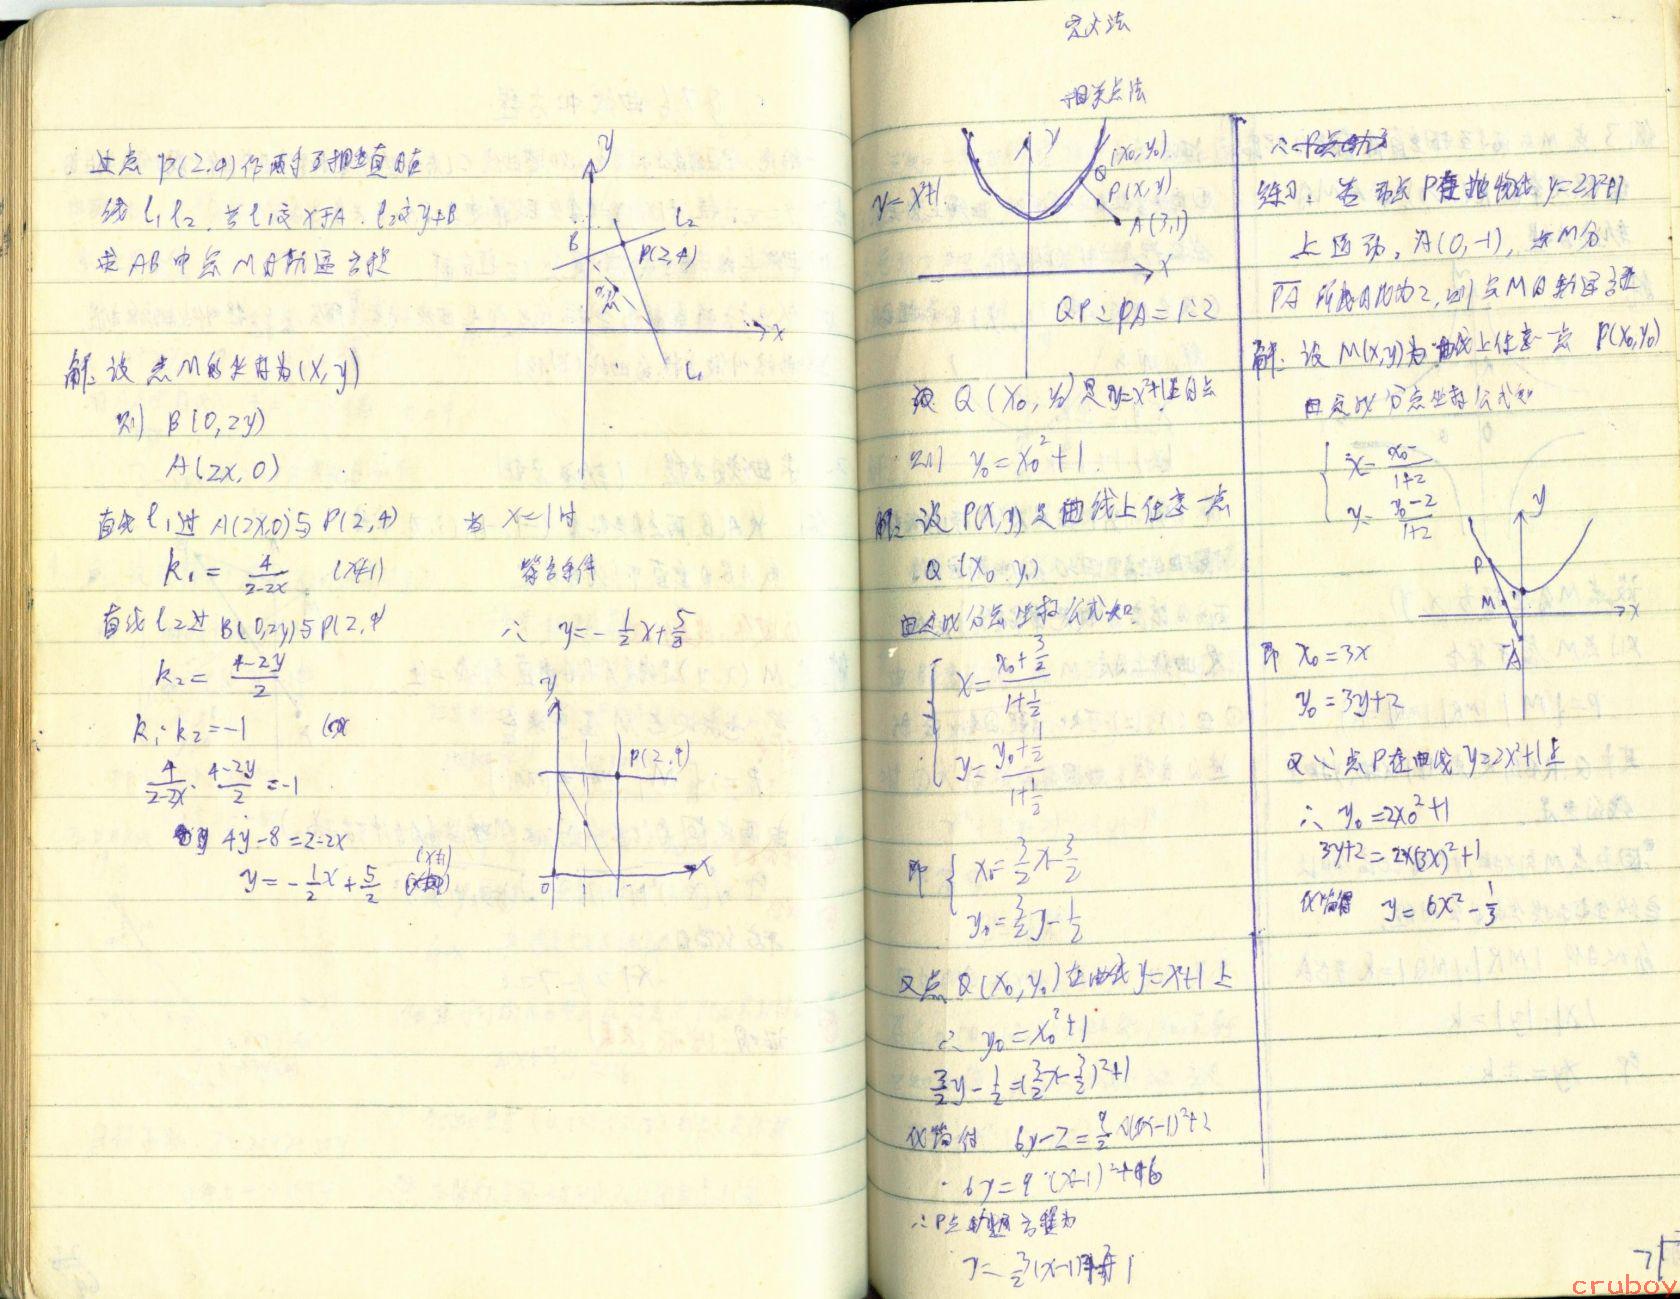 过点 P(2,4) 作两条互相垂直的直
线 l₁ l₂,若 l₁交x于A. l₂交y于B
求AB中点M的轨迹方程
y
B
l₂
P(2,4)
x
l₁
解: 设点M的坐标为(x,y)
则 B(0,2y)
A(2x,0)
直线 l₁过 A(2x,0)与 P(2,4)
k₁ = 4/(2-2x) (x≠1)
直线 l₂过 B(0,2y)与P(2,4
k₂ = (4-2y)/2
k₁·k₂ = -1
4/(2-2x) · (4-2y)/2 = -1
4y-8 = 2-2x
y = -1/2 x + 5/2 (x≠1)
当 x=1时
符合条件
∴ y = -1/2 x + 5/2
y
P(2,4)
0
1
x
定义法
相关点法
y = x²+1
y
(x₀,y₀)
Q
P(x,y)
A(3,1)
x
QP:PA=1:2
设 Q (x₀, y₀) 是y=x²+1上的点
则 y₀ = x₀² + 1.
解: 设 P(x,y) 是曲线上任意一点
Q (x₀, y₀)
由定比分点坐标公式知
x = (x₀ + 3/2)/(1+1/2)
y = (y₀ + 1/2)/(1+1/2)
即 { x₀ = 3/2 x - 3/2
y₀ = 3/2 y - 1/2
又点 Q(x₀,y₀)在曲线 y=x²+1 上
∴ y₀ = x₀² + 1
3/2 y - 1/2 = (3/2 x - 3/2)² + 1
化简得 6y-2 =
∴P点的轨迹方程为
练习: 若动点P在抛物线 y=2x²+1
上运动, A(0,-1), 点M分
PA 所成的比为2, 则点M的轨迹方程
解: 设 M(x,y)为曲线上任意一点 P(x₀,y₀)
由定比分点坐标公式知
x = x₀/(1+2)
y = (y₀-2)/(1+2)
y
P
M
x
-A
即 x₀ = 3x
y₀ = 3y+2
又∵点P在曲线 y=2x²+1上
∴ y₀ = 2x₀² + 1
3y+2 = 2×(3x)² + 1
化简得 y = 6x² - 1/3
cruboy